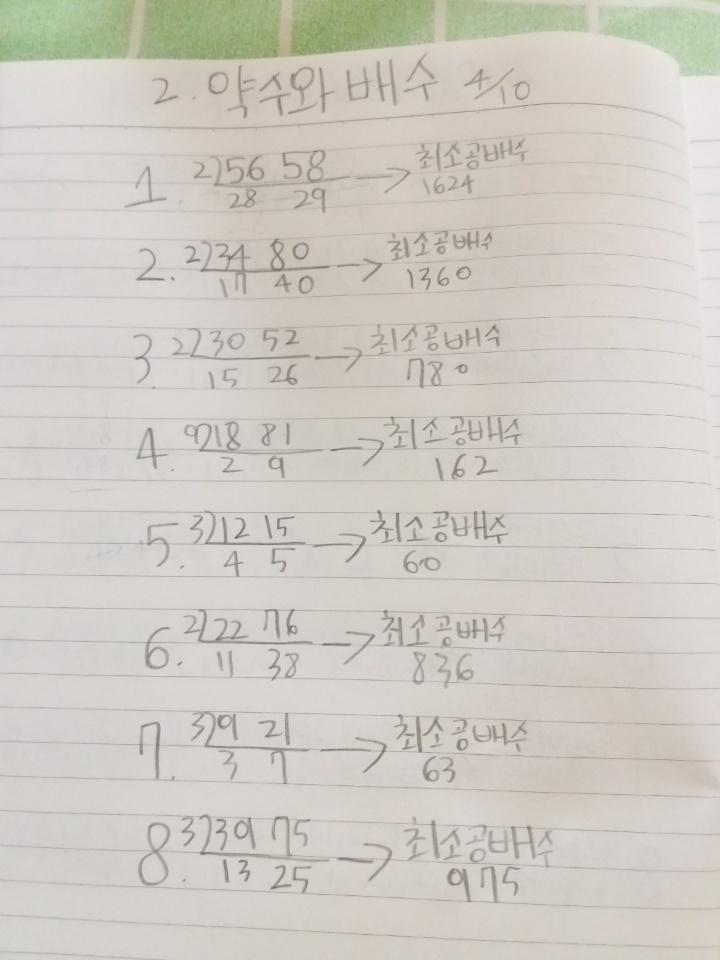 2. 약수와 배수 4/10
1. 2)56 58 → 최소공배수
28 29 1624
2. 2)34 80 → 최소공배수
17 40 1360
3. 2)30 52 → 최소공배수
15 26 780
4. 9)18 81 → 최소공배수
2 9 162
5. 3)12 15 → 최소공배수
4 5 60
6. 2)22 76 → 최소공배수
11 38 836
7. 3)9 21 → 최소공배수
3 7 63
8. 3)39 75 → 최소공배수
13 25 975